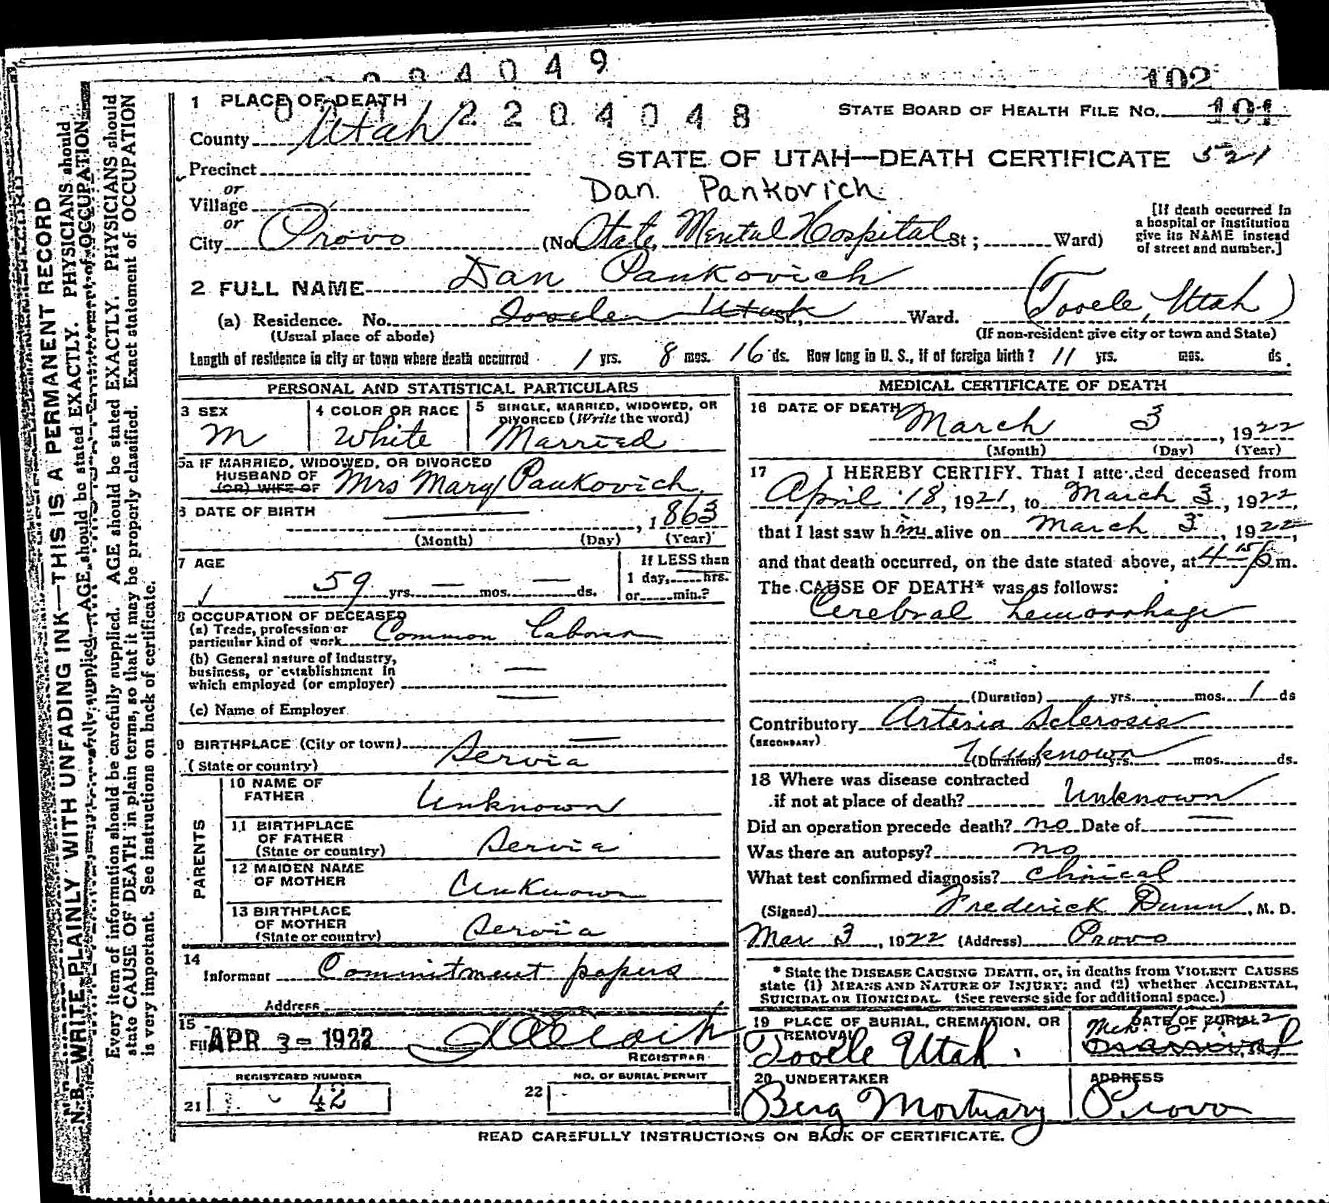 4 0 4 9
102
1 PLACE OF DEATH
2 2 0 4 0 4 8
STATE BOARD OF HEALTH FILE No. 101
County Utah
STATE OF UTAH—DEATH CERTIFICATE 521
Precinct
or
Dan Pankovich
Village
or
City Provo (No State Mental Hospital St ; Ward)
[If death occurred in
a hospital or institution
give its NAME instead
of street and number.]
2 FULL NAME Dan Pankovich
(a) Residence. No. Tooele Utah St., Ward. (Tooele, Utah)
(Usual place of abode) (If non-resident give city or town and State)
Length of residence in city or town where death occurred 1 yrs. 8 mos. 16 ds. How long in U. S., if of foreign birth? 11 yrs. mos. ds.
PERSONAL AND STATISTICAL PARTICULARS
3 SEX
M
4 COLOR OR RACE
White
5 SINGLE, MARRIED, WIDOWED, OR
DIVORCED (Write the word)
Married
5a IF MARRIED, WIDOWED, OR DIVORCED
HUSBAND OF
(OR) WIFE OF Mrs Mary Pankovich
6 DATE OF BIRTH
, 1863
(Month) (Day) (Year)
7 AGE
59 yrs. — mos. — ds.
If LESS than
1 day, hrs.
or min.?
8 OCCUPATION OF DECEASED
(a) Trade, profession or
particular kind of work Common Labour
(b) General nature of industry,
business, or establishment in
which employed (or employer) —
(c) Name of Employer —
9 BIRTHPLACE (City or town) —
(State or country) Servia
PARENTS
10 NAME OF
FATHER Unknown
11 BIRTHPLACE
OF FATHER
(State or country) Servia
12 MAIDEN NAME
OF MOTHER Unknown
13 BIRTHPLACE
OF MOTHER
(State or country) Servia
14
Informant Commitment papers
Address
15
Filed APR 3 - 1922
REGISTRAR
REGISTERED NUMBER
21 42
NO. OF BURIAL PERMIT
22
MEDICAL CERTIFICATE OF DEATH
16 DATE OF DEATH March 3, 1922
(Month) (Day) (Year)
17 I HEREBY CERTIFY. That I attended deceased from
April 18, 1921, to March 3, 1922
that I last saw him alive on March 3, 1922,
and that death occurred, on the date stated above, at 4-15 P m.
The CAUSE OF DEATH* was as follows:
Cerebral Hemorrhage
(Duration) yrs. mos. 1 ds
Contributory Arteria Sclerosis
(SECONDARY)
Unknown
(Duration) yrs. mos. ds.
18 Where was disease contracted
if not at place of death? Unknown
Did an operation precede death? no Date of —
Was there an autopsy? no
What test confirmed diagnosis? clinical
(Signed) Frederick Dunn, M. D.
Mar 3, 1922 (Address) Provo
* State the DISEASE CAUSING DEATH, or, in deaths from VIOLENT CAUSES
state (1) MEANS AND NATURE OF INJURY; and (2) whether ACCIDENTAL,
SUICIDAL OR HOMICIDAL. (See reverse side for additional space.)
19 PLACE OF BURIAL, CREMATION, OR
REMOVAL
Tooele Utah.
DATE OF BURIAL
20 UNDERTAKER
Berg Mortuary
ADDRESS
Provo
READ CAREFULLY INSTRUCTIONS ON BACK OF CERTIFICATE.
N. B. WRITE PLAINLY WITH UNFADING INK—THIS IS A PERMANENT RECORD
Every item of information should be carefully supplied. AGE should be stated EXACTLY. PHYSICIANS should
state CAUSE OF DEATH in plain terms, so that it may be properly classified. Exact statement of OCCUPATION
is very important. See instructions on back of certificate.